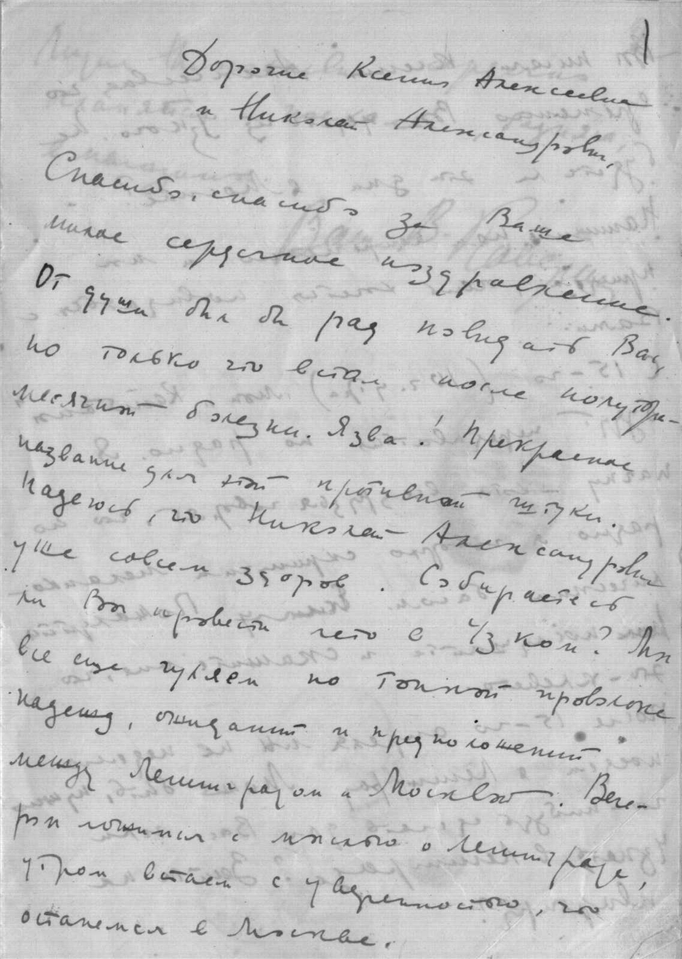 1
Дорогие Ксения Алексеевна
и Николай Александрович,
Спасибо, спасибо за Ваше
милое сердечное поздравление.
От души был бы рад повидать Вас,
но только что встал после полутора-
месячной болезни. Язва! Прекрасное
название для этой противной штуки.
Надеюсь, что Николай Александрович
уже совсем здоров. Собираетесь
ли Вы провести лето в Узком? Мы
все еще гуляем по тонкой проволоке
надежд, ожиданий и предположений
между Ленинградом и Москвой. Вече-
ром ложимся с мыслью о Ленинграде,
утром встаем с уверенностью, что
останемся в Москве.